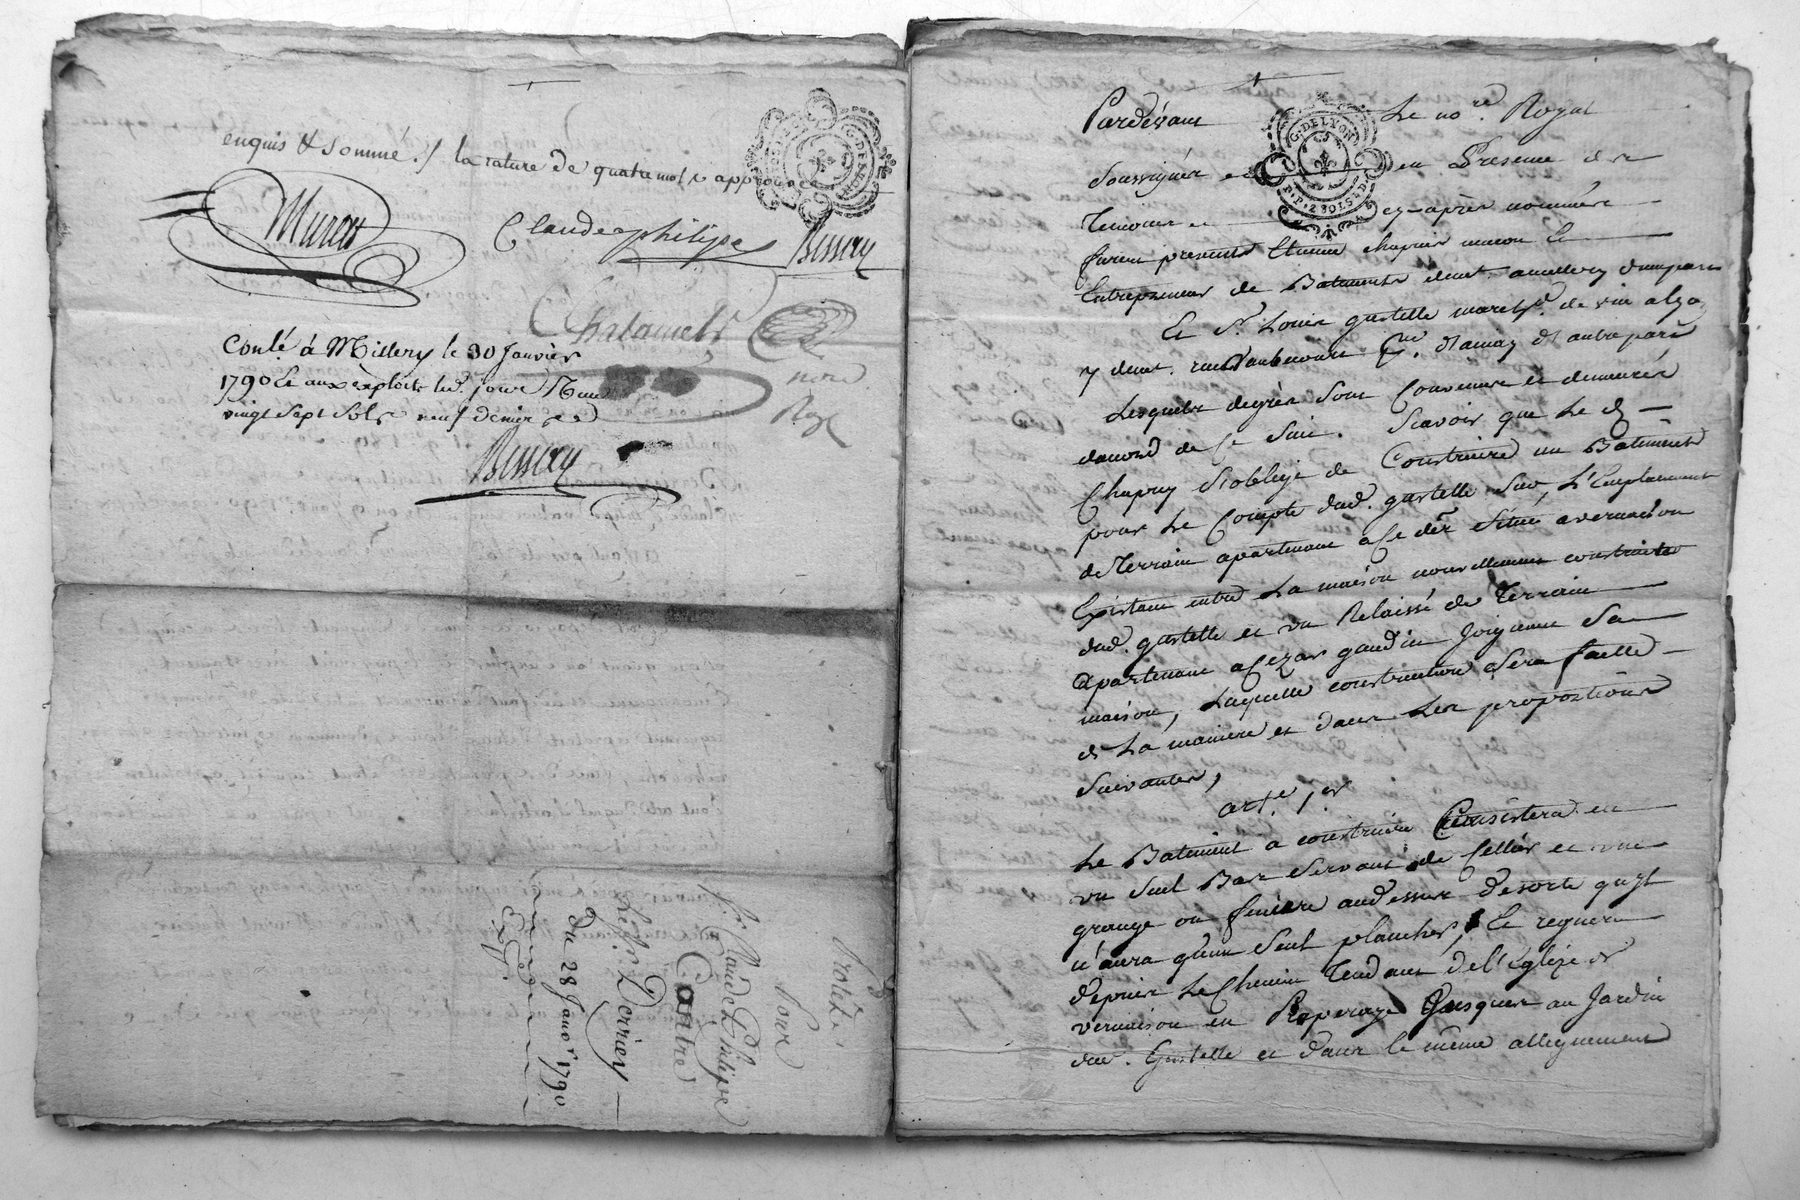 enquis & sommé ./ la rature de quatre mots approuvée
G. DE LYON
Muret
Claude philipe
Bissery
Chalamel
nore
Roy
Conlé à Millery le 30 Janvier
1790 & aux exploits led. jour
vingt sept sols neuf deniers
Bissery
Protête
Pour
Sr. Claude Philipe
Contre
Le Sr. Derrien
Du 28 Janer. 1790
Exp.
Pardevant Le nore. Royal
G. DE LYON
P. P. 2 SOLS 4 D.
Soussigné et en Presence des
Temoins cy-après nommés
furent presents Etienne chapuis macon &
Entrepreneur de Batiments demt. a millery dunepart
Et Sr. Louis gastelle marchd. de vin a lyo
n demt. rue Vaubecour psse. d'ainay d'autrepart
Lesquels degrés sont Convenus et demeurés
dacord de Ce Suit. Scavoir que Le d.
Chapuy S'oblige de Construire un Batiment
pour Le Compte dud. gastelle sur L'Emplacement
de Terrain apartenant a Ce der. Situé a vernaison
Existant entre La maison nouvellement construite
dud. gastelle et un Relaissé de Terrain
apartenant a Cezar gaudin Joignant Sa
maison, Laquelle construction Sera faitte
de La maniere et dans Les proportions
Suivantes,
arte. 1er.
Le Batiment a construire Consistera en
un Seul Bas Servant de Cellier et une
grange ou feniere audessus desorte qu'il
n'aura qu'un Seul plancher, Et regnera
depuis Le Chemin Tendant de l'Eglize de
vernaison en Jusques au Jardin
dud. Gastelle et dans le même allignement